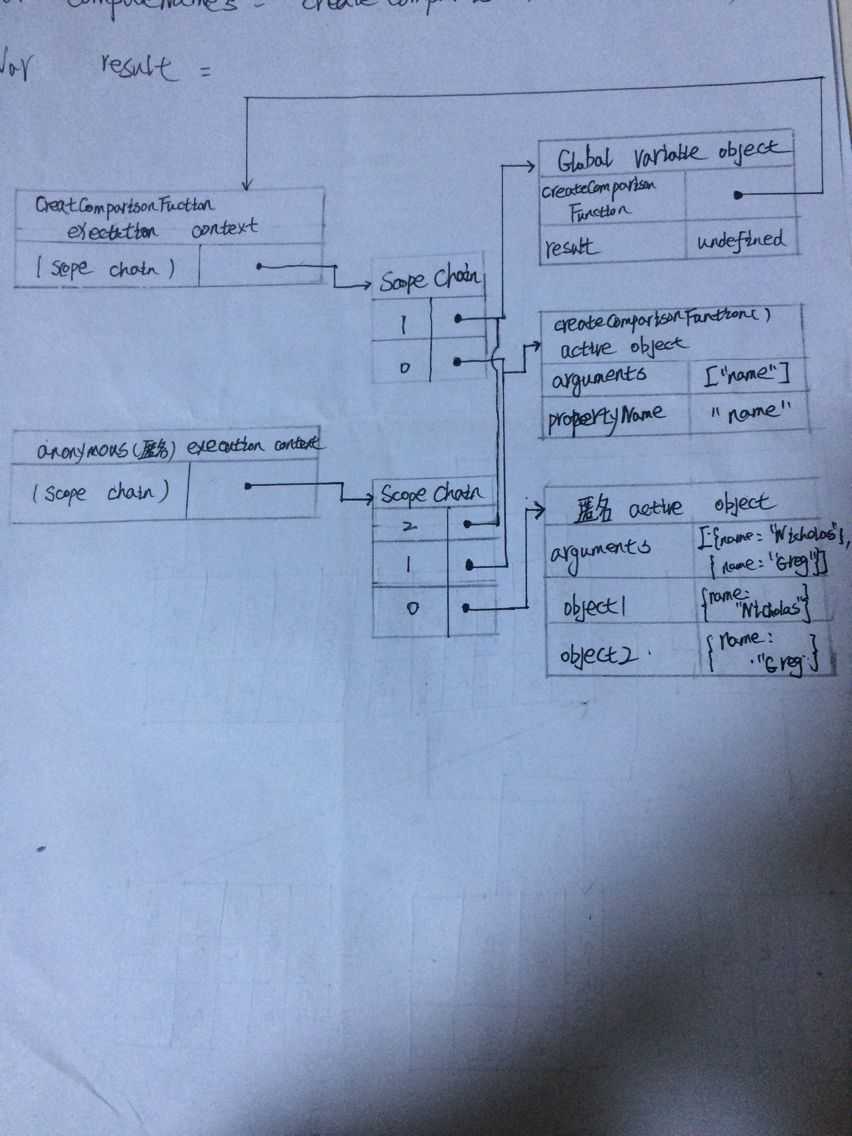 result =
CreatComparisonFuction
exectition context
(scope chain)
Scope Chain
1
0
Global variable object
createComparison
Function
result undefined
createComparisonFunction()
active object
arguments ["name"]
propertyName "name"
anonymous(匿名) execution context
(scope chain)
Scope Chain
2
1
0
匿名 active object
arguments [{name: "Nicholas"},
{name: "Greg"}]
object1 {name:
"Nicholas"}
object2 {name:
"Greg}